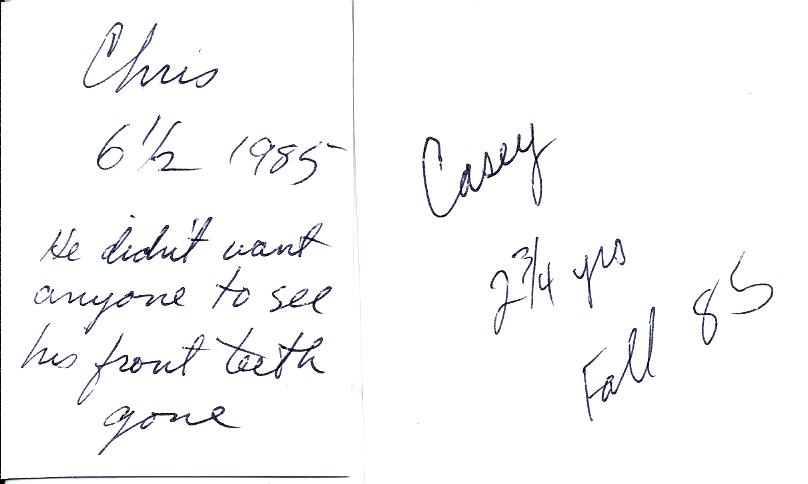 Chris
6 1/2 1985
He didn't want
anyone to see
his front teeth
gone
Casey
2 3/4 yrs
Fall 85